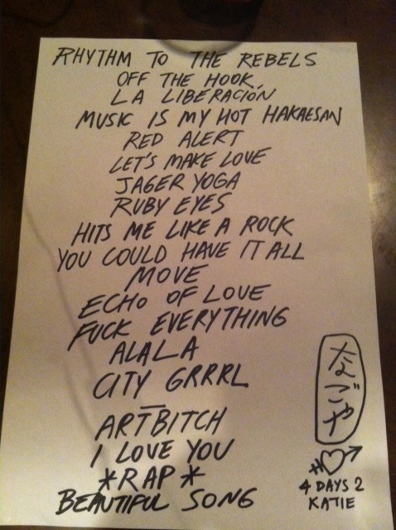 RHYTHM TO THE REBELS
OFF THE HOOK
LA LIBERACIÓN
MUSIC IS MY HOT HAKAESAN
RED ALERT
LET'S MAKE LOVE
JAGER YOGA
RUBY EYES
HITS ME LIKE A ROCK
YOU COULD HAVE IT ALL
MOVE
ECHO OF LOVE
FUCK EVERYTHING
ALALA
CITY GRRRL
ARTBITCH
I LOVE YOU
*RAP*
BEAUTIFUL SONG
なごや
4 DAYS 2
KATIE